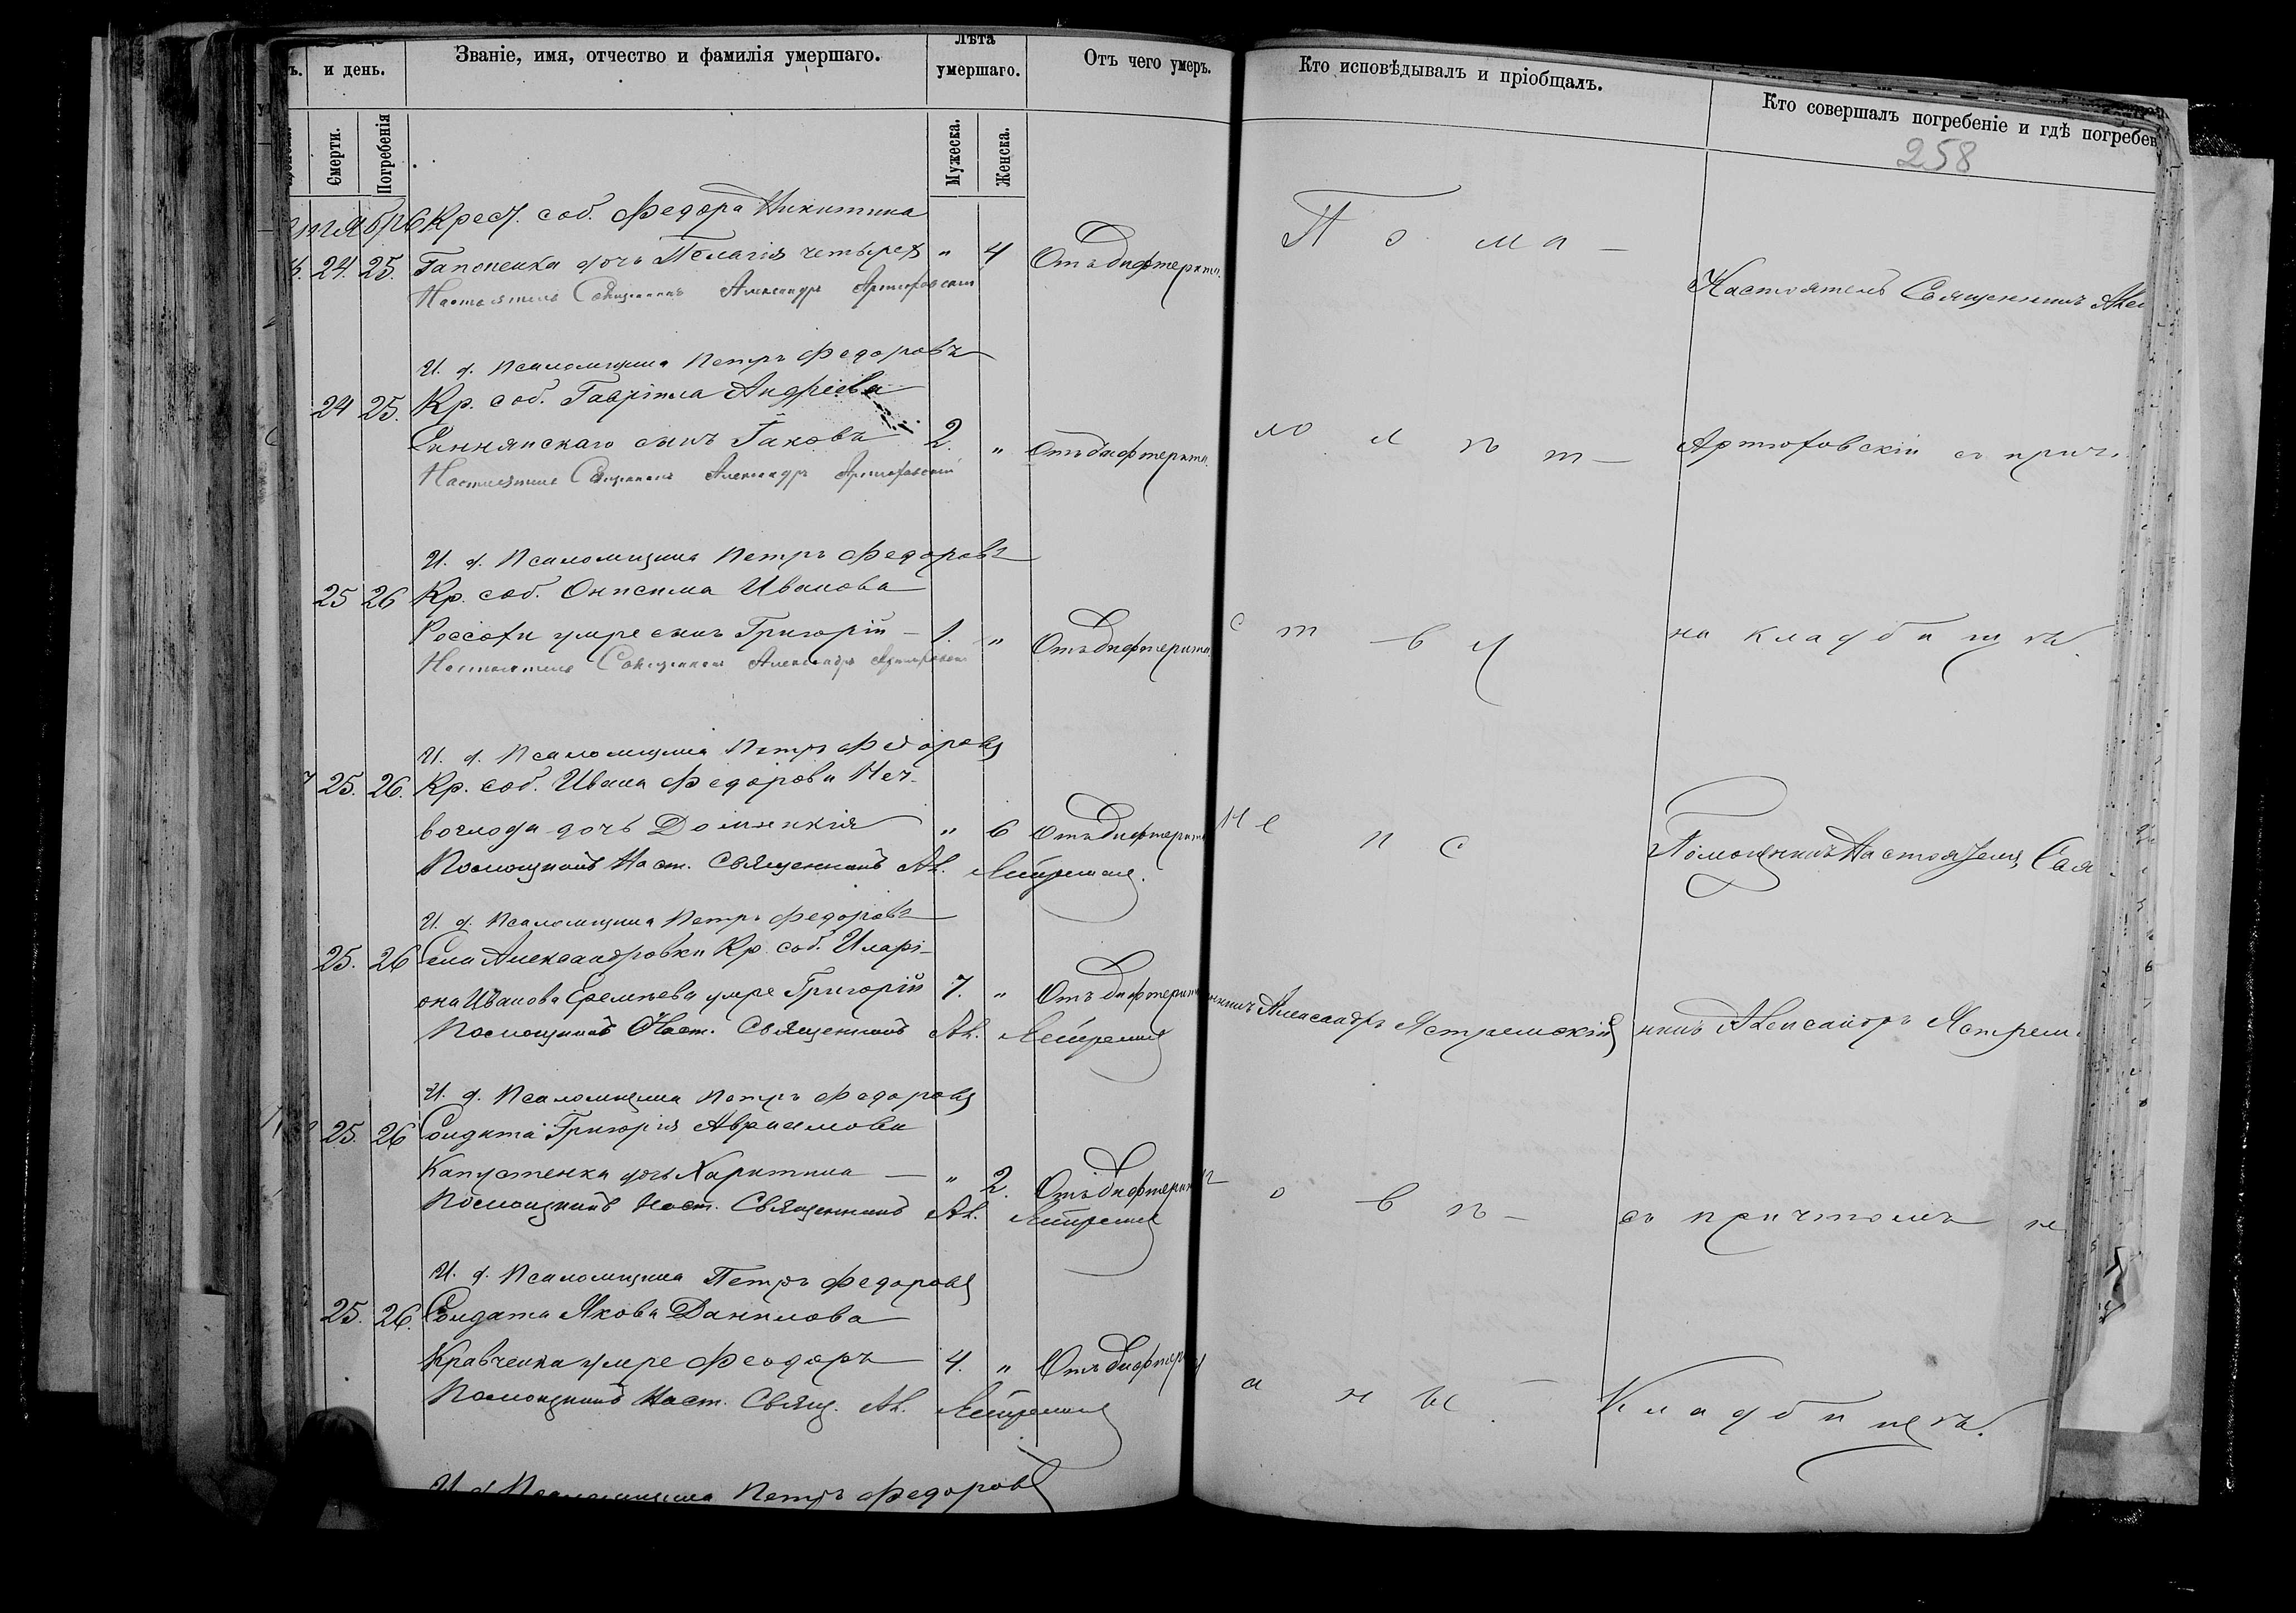 и день.
Званіе, имя, отчество и фамилія умершаго.
Лѣта умершаго.
Отъ чего умеръ.
Кто исповѣдывалъ и пріобщалъ.
Кто совершалъ погребеніе и гдѣ погребен
Смерти.
Погребенія
Мужеска.
Женска.
258
Крест. соб. Федора Никитина
24. 25. Гапоненка дочь Пелагія четырех " 4 Отъ дифтерита.
Настоятель Священникъ Александръ Артюховскій
И. д. Псаломщика Петръ Федоровъ
24 25. Кр. соб. Гавріила Андреева
сынъ Іаковъ 2. " Отъ дифтерита.
Настоятель Священникъ Александръ Артюховскій
И. д. Псаломщика Петръ Федоровъ
25 26 Кр. соб. Онисима Иванова
Россохи умре сынъ Григорій – 1. " Отъ дифтерита.
Настоятель Священникъ Александръ Артюховскій
И. д. Псаломщика Петръ Федоровъ
25. 26. Кр. соб. Ивана Федорова Неч-
воглода дочь Домникія " 6 Отъ дифтерита
Помощникъ Наст. Священникъ Ал. Ястремскій
И. д. Псаломщика Петръ Федоровъ
25. 26 Села Александровки Кр. соб. Иларі-
она Иванова Еремѣева умре Григорій 7. " Отъ дифтерита
Помощникъ Наст. Священникъ Ал. Ястремскій
И. д. Псаломщика Петръ Федоровъ
25. 26 Солдата Григорія Авраамова
Капустенка дочь Харитина – " 2. Отъ дифтерита
Помощникъ Наст. Священникъ Ал. Ястремскій
И. д. Псаломщика Петръ Федоровъ
25. 26. Солдата Якова Данилова
Кравченка умре Феодоръ 4. " Отъ дифтерита
Помощникъ Наст. Свящ. Ал. Ястремскій
И. д. Псаломщика Петръ Федоровъ
П о ма –
ло л ѣ т –
с т в у
не и с
никъ Александръ Ястремскій
п о в ѣ –
д а н ы. –
Настоятель Священникъ Алек
Артюховскій съ прич.
на кладбищѣ.
Помощникъ Настоятеля Свя
никъ Александръ Ястрем.
съ причтомъ на
Кладбищѣ.